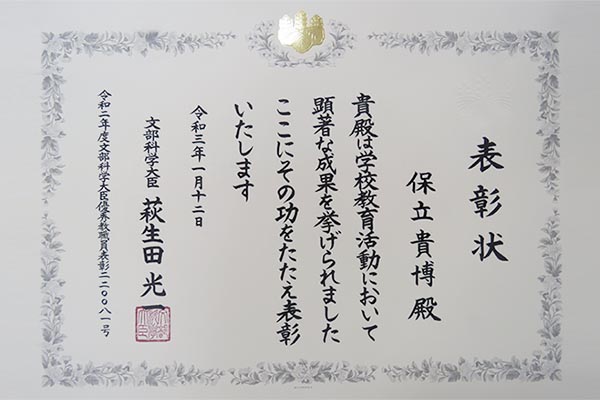 表彰状
保立貴博殿
貴殿は学校教育活動において
顕著な成果を挙げられました
ここにその功をたたえ表彰
いたします
令和三年一月十二日
文部科学大臣 萩生田光一
令和二年度文部科学大臣優秀教職員表彰二二〇〇八一号